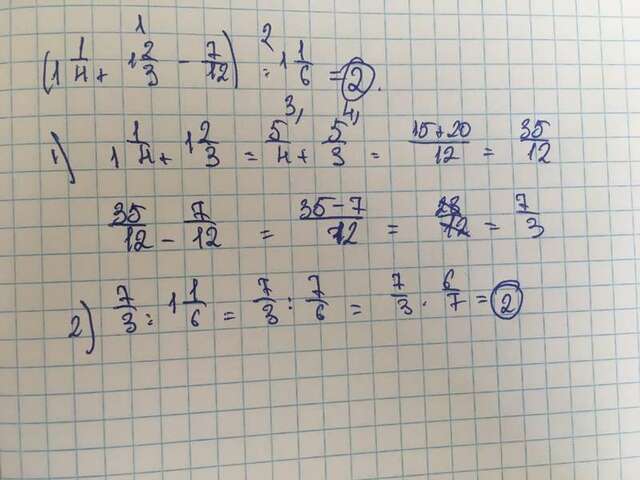 (1 1/4 + 1 2/3 - 7/12) : 1 1/6 = 2.
1) 1 1/4 + 1 2/3 = 5/4 + 5/3 = 15+20/12 = 35/12
35/12 - 7/12 = 35-7/12 = 28/12 = 7/3
2) 7/3 : 1 1/6 = 7/3 : 7/6 = 7/3 · 6/7 = 2